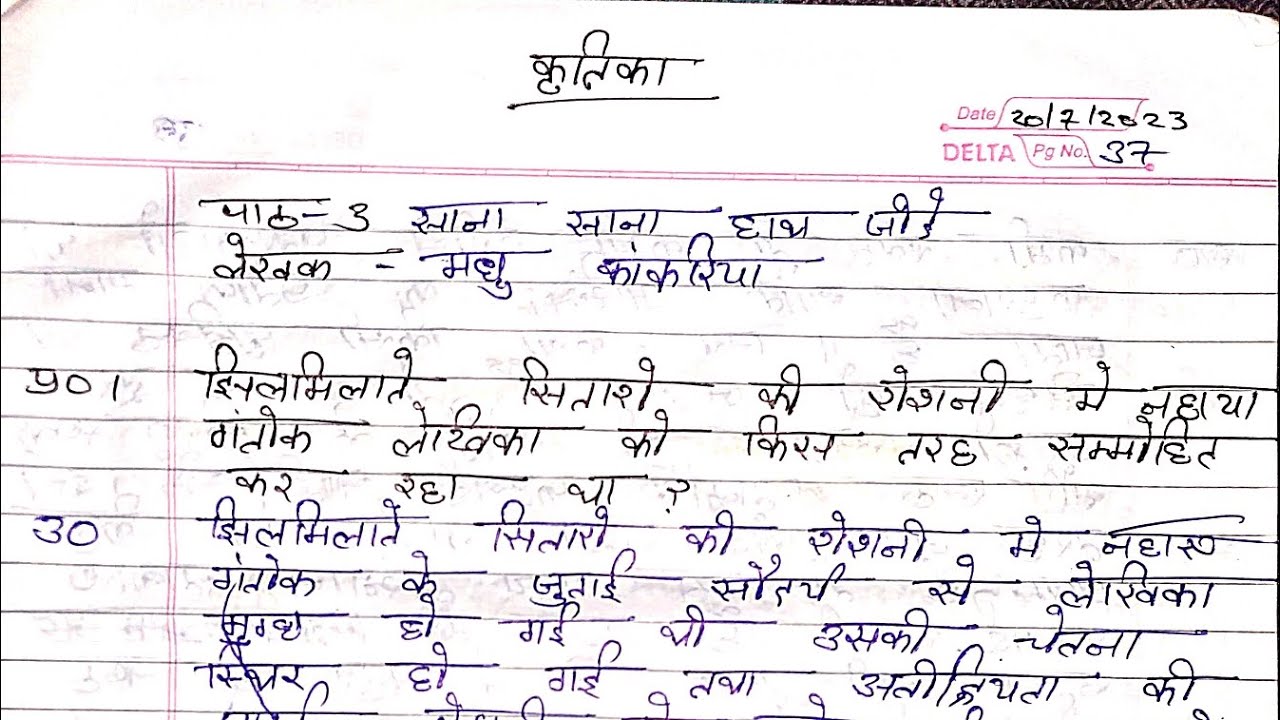 कृतिका
Date 20/7/2023
DELTA Pg No. 37
पाठ-3 साना साना हाथ जोडे
लेखक - मधु कांकरिया
प्र०1 झिलमिलाते सितारो की रोशनी मे नहाया
गंतोक लेखिका को किस तरह सम्मोहित
कर रहा था ?
उ० झिलमिलाते सितारो की रोशनी मे नहाए
गंतोक के जुताई सौंदर्य से लेखिका
मुग्ध हो गई थी उसकी चेतना
स्थिर हो गई तथा अतीन्द्रियता की